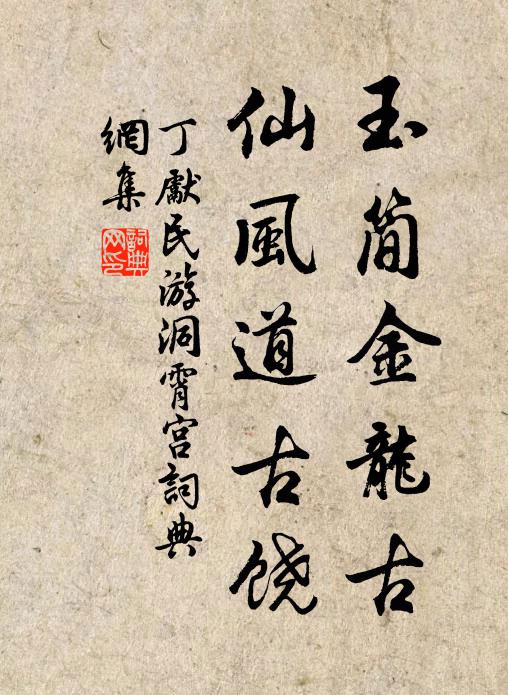 玉简金龍古
仙風道古饶
丁獻民游洞霄宫詞典
網集
詞典网印